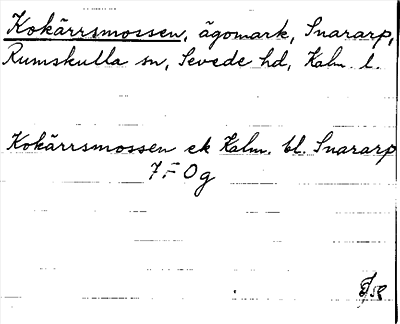 Kokärrsmossen, ägomark, Snararp,
Rumskulla sn, Sevede hd, Kalm. l.
Kokärrsmossen ek Kalm. bl. Snararp
7 F 0 g